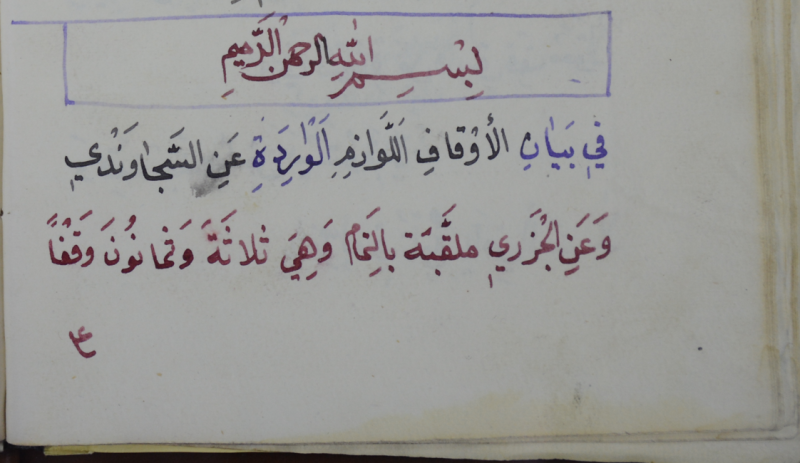 بِسْمِ اللهِ الرحمن الرَّحِيمِ
فِي بَيَانِ الأَوْقَافِ اَللَّوَازِمِ اَلْوَارِدَةِ عَنِ السَّجَاوَنْدِي
وَعَنِ الْجَزَرِي ملقَّبَة بالِتَمَامِ وَهِيَ ثلاثَةَ وَثمانُونَ وَقْفًا